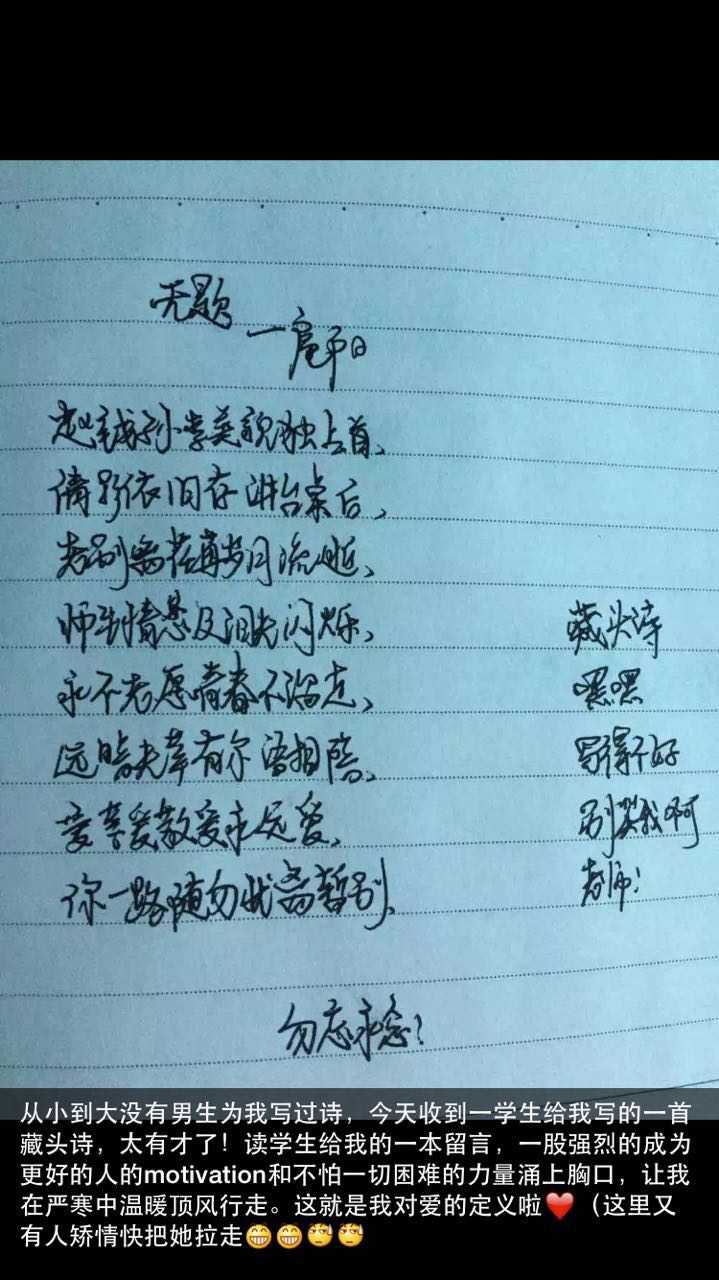 无题
一扈平日
赵钱孙李美貌独占首、
倩影依旧存讲台桌后、
老别离苍苒岁月流逝、
师生情愚及泪失闪烁、
永不老愿青春不溜走、
远暗失岸有尔语相陪、
爱尊爱敬爱永远爱、
你一路随勿忧离暂别、
勿忘永念！
藏头诗
嘿嘿
写得不好
别笑我啊
老师！
从小到大没有男生为我写过诗，今天收到一学生给我写的一首
藏头诗，太有才了！读学生给我的一本留言，一股强烈的成为
更好的人的motivation和不怕一切困难的力量涌上胸口，让我
在严寒中温暖顶风行走。这就是我对爱的定义啦❤️（这里又
有人矫情快把她拉走😁😁😓😓